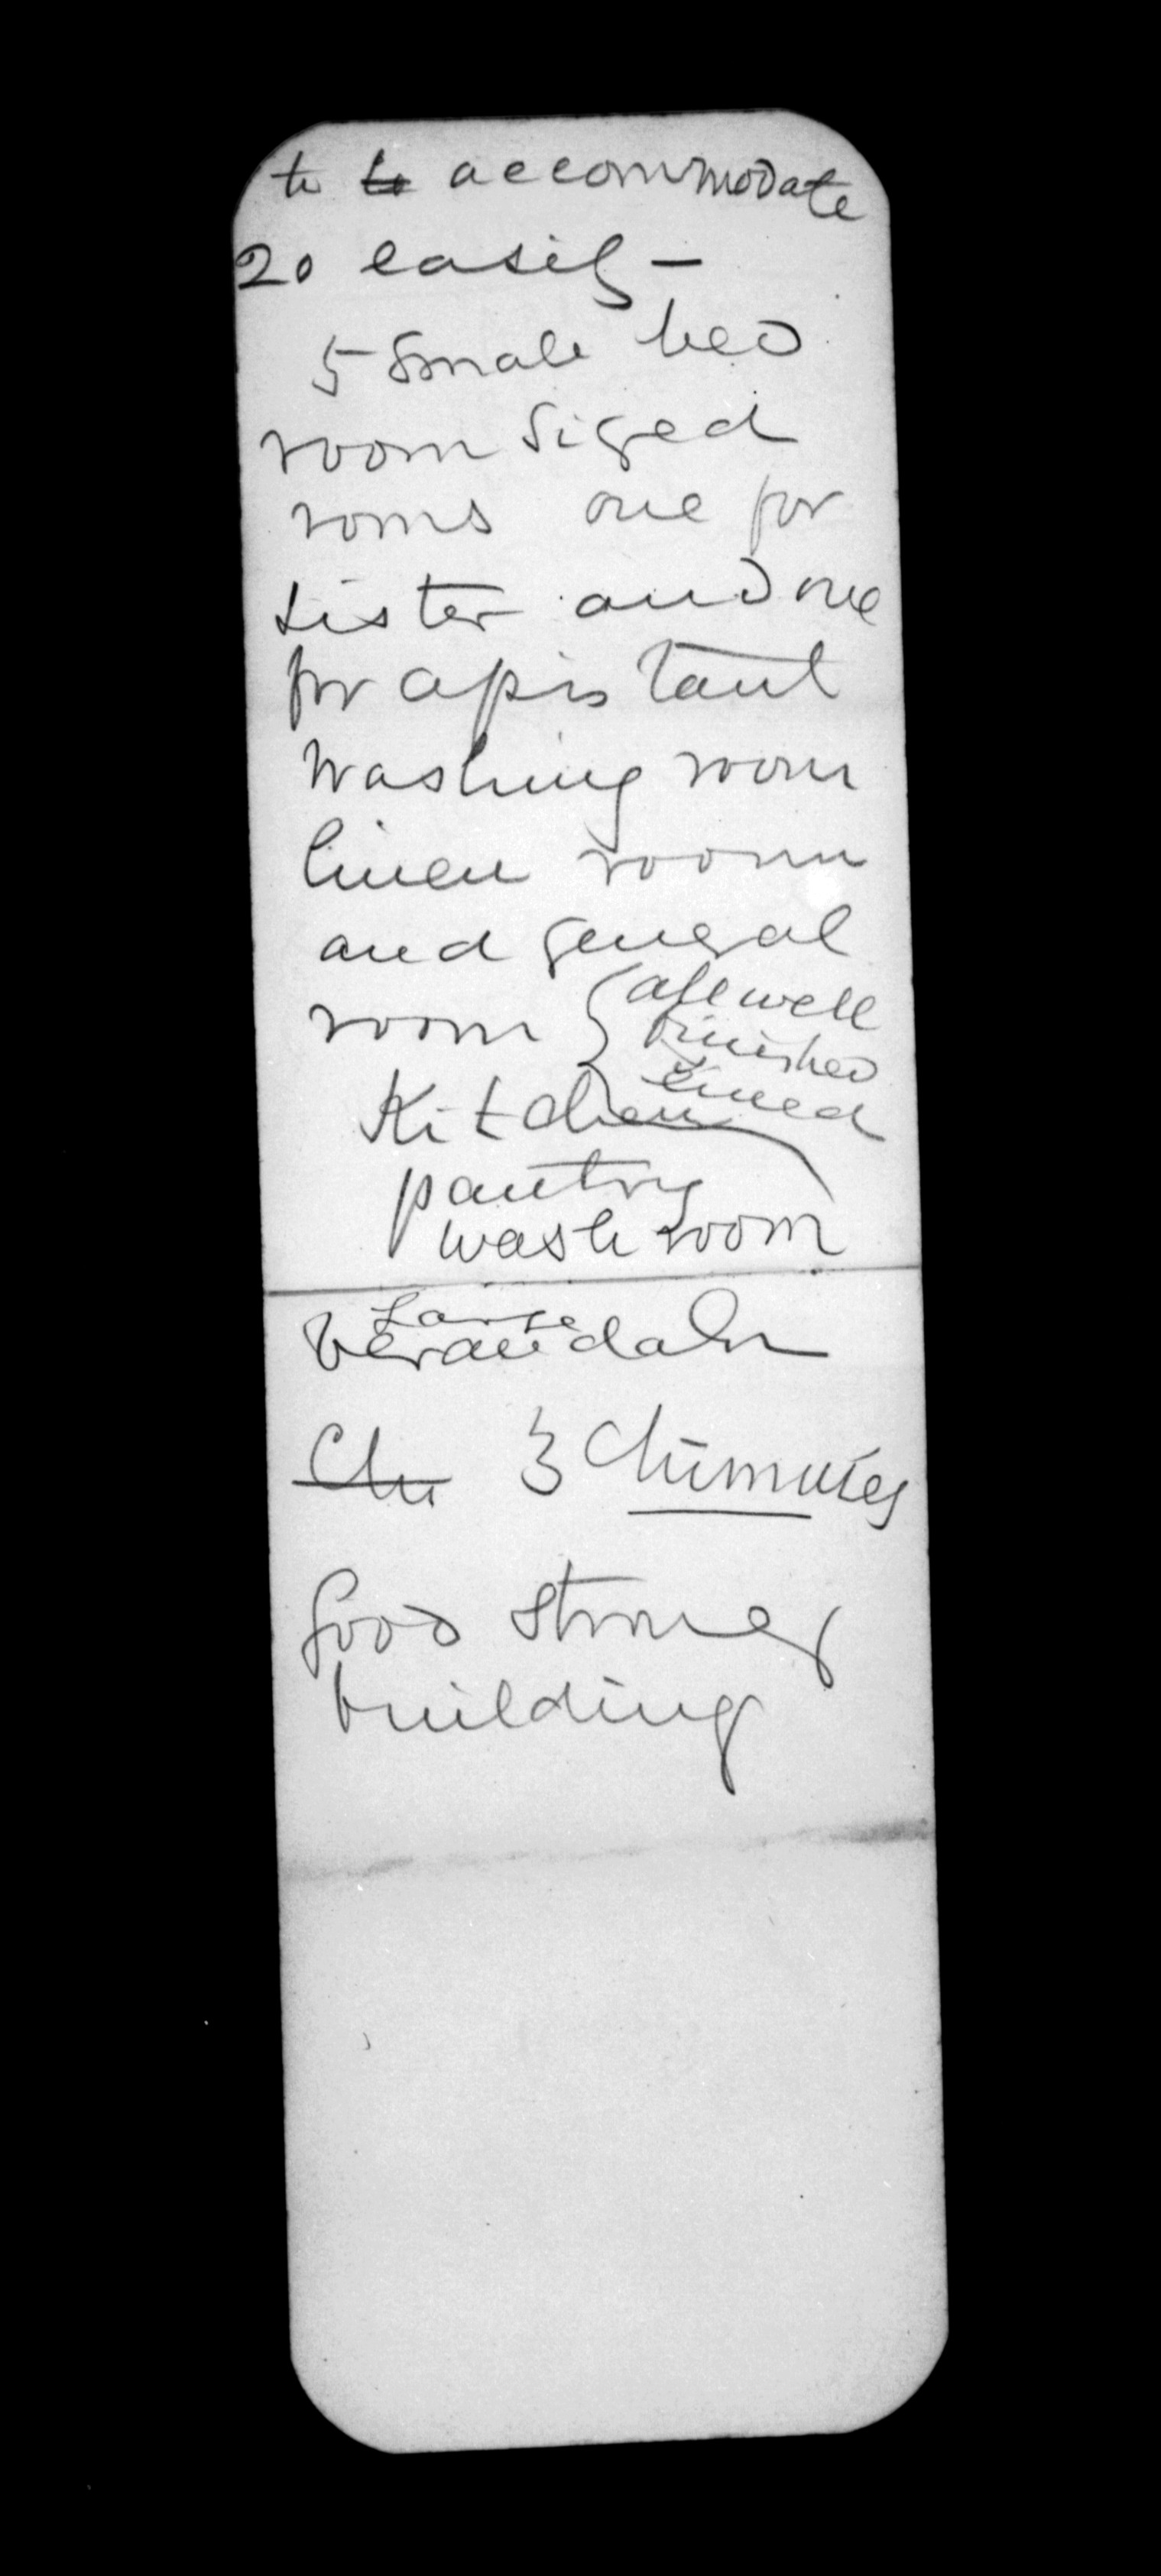 to to accommodate
20 easily —
5 small bed
room sized
roms one for
sister and one
for assistant
washing room
linen room
and general
room { all well
finished
lined
Kitchen
pantry
wash room
Large
Verandah
Chi 3 Chimnies
Good strong
building